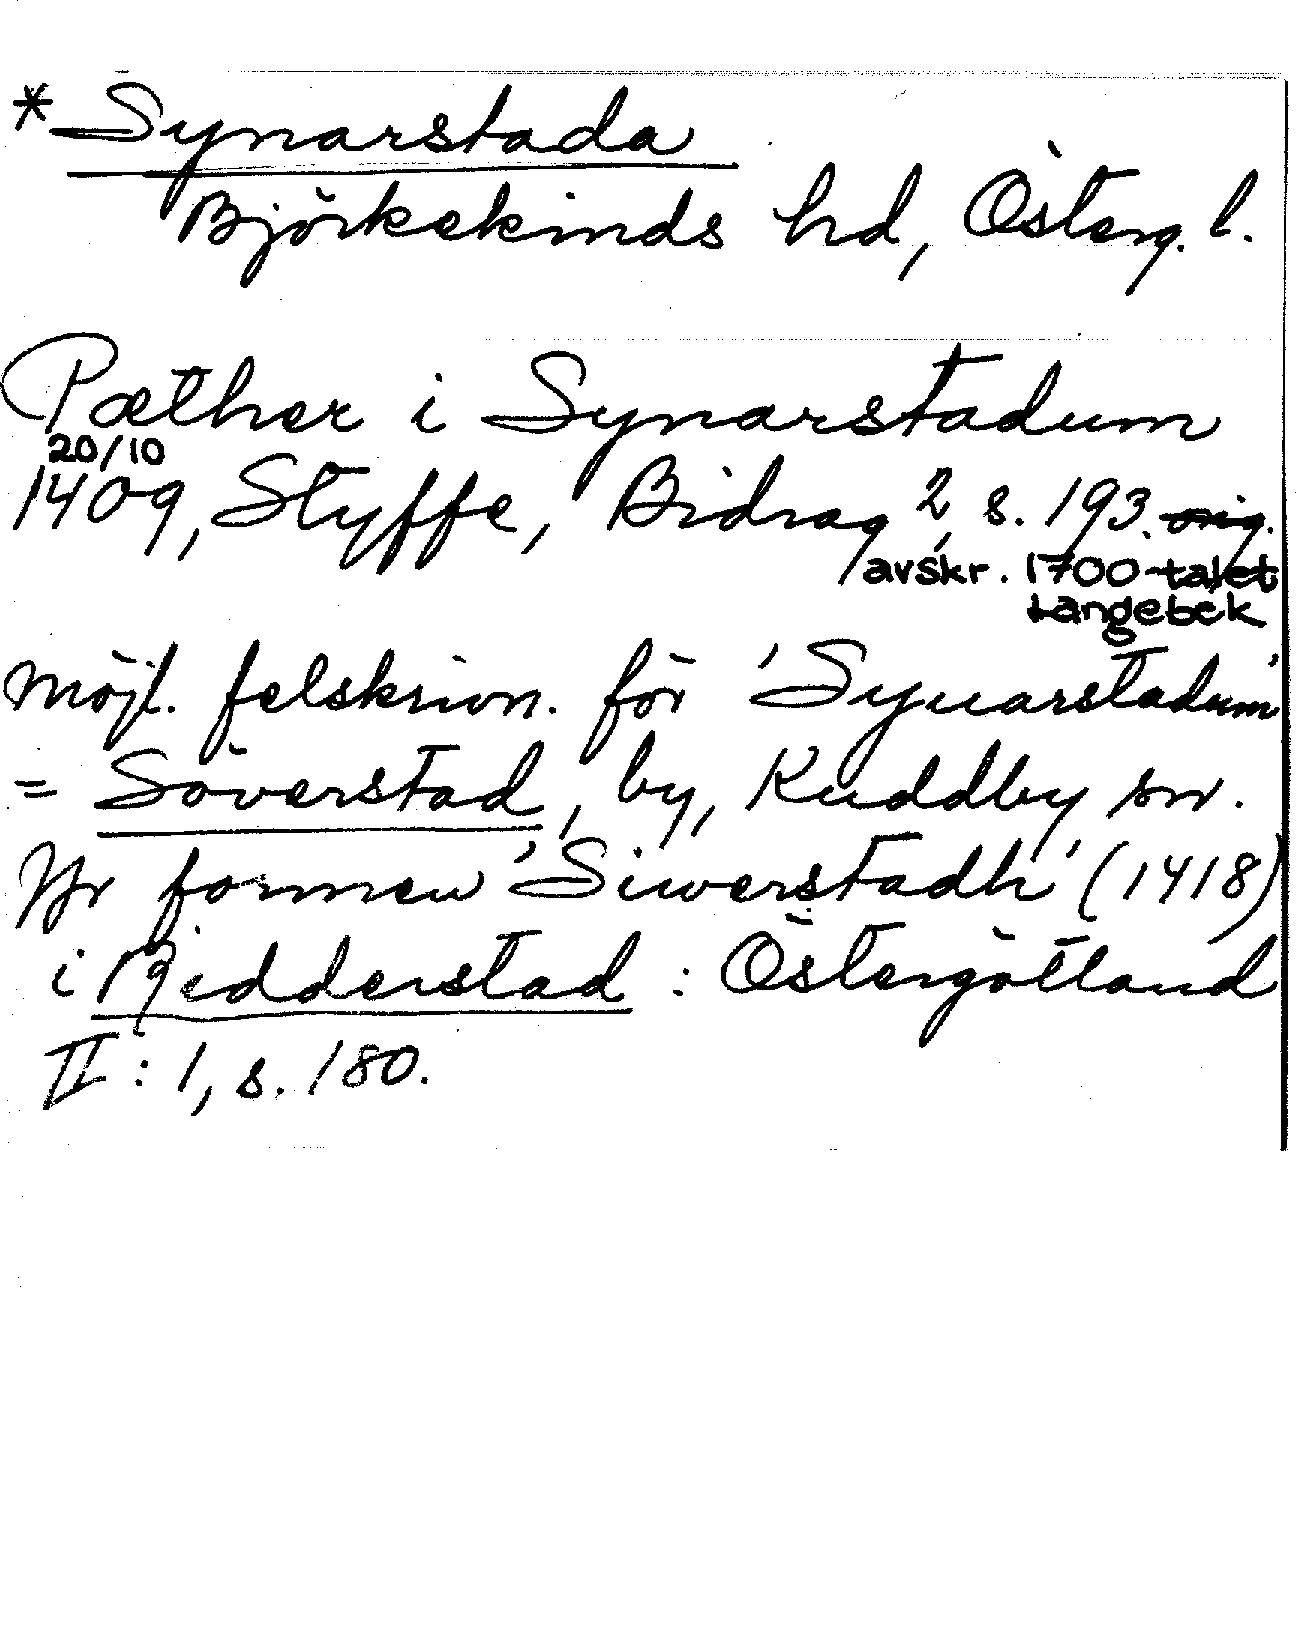 *Synarstada
Björkekinds hd, Österg. l.
Pæther i Synarstadum
20/10
1409, Styffe, Bidrag 2, s. 193. orig.
avskr. 1700-talet
Langebek
möjl. felskrivn. för 'Syuarstadum'
= Söverstad, by, Kuddby sn.
Jfr formen 'Siwerstadh' (1418)
i Ridderstad : Östergötland
II : 1, s. 180.